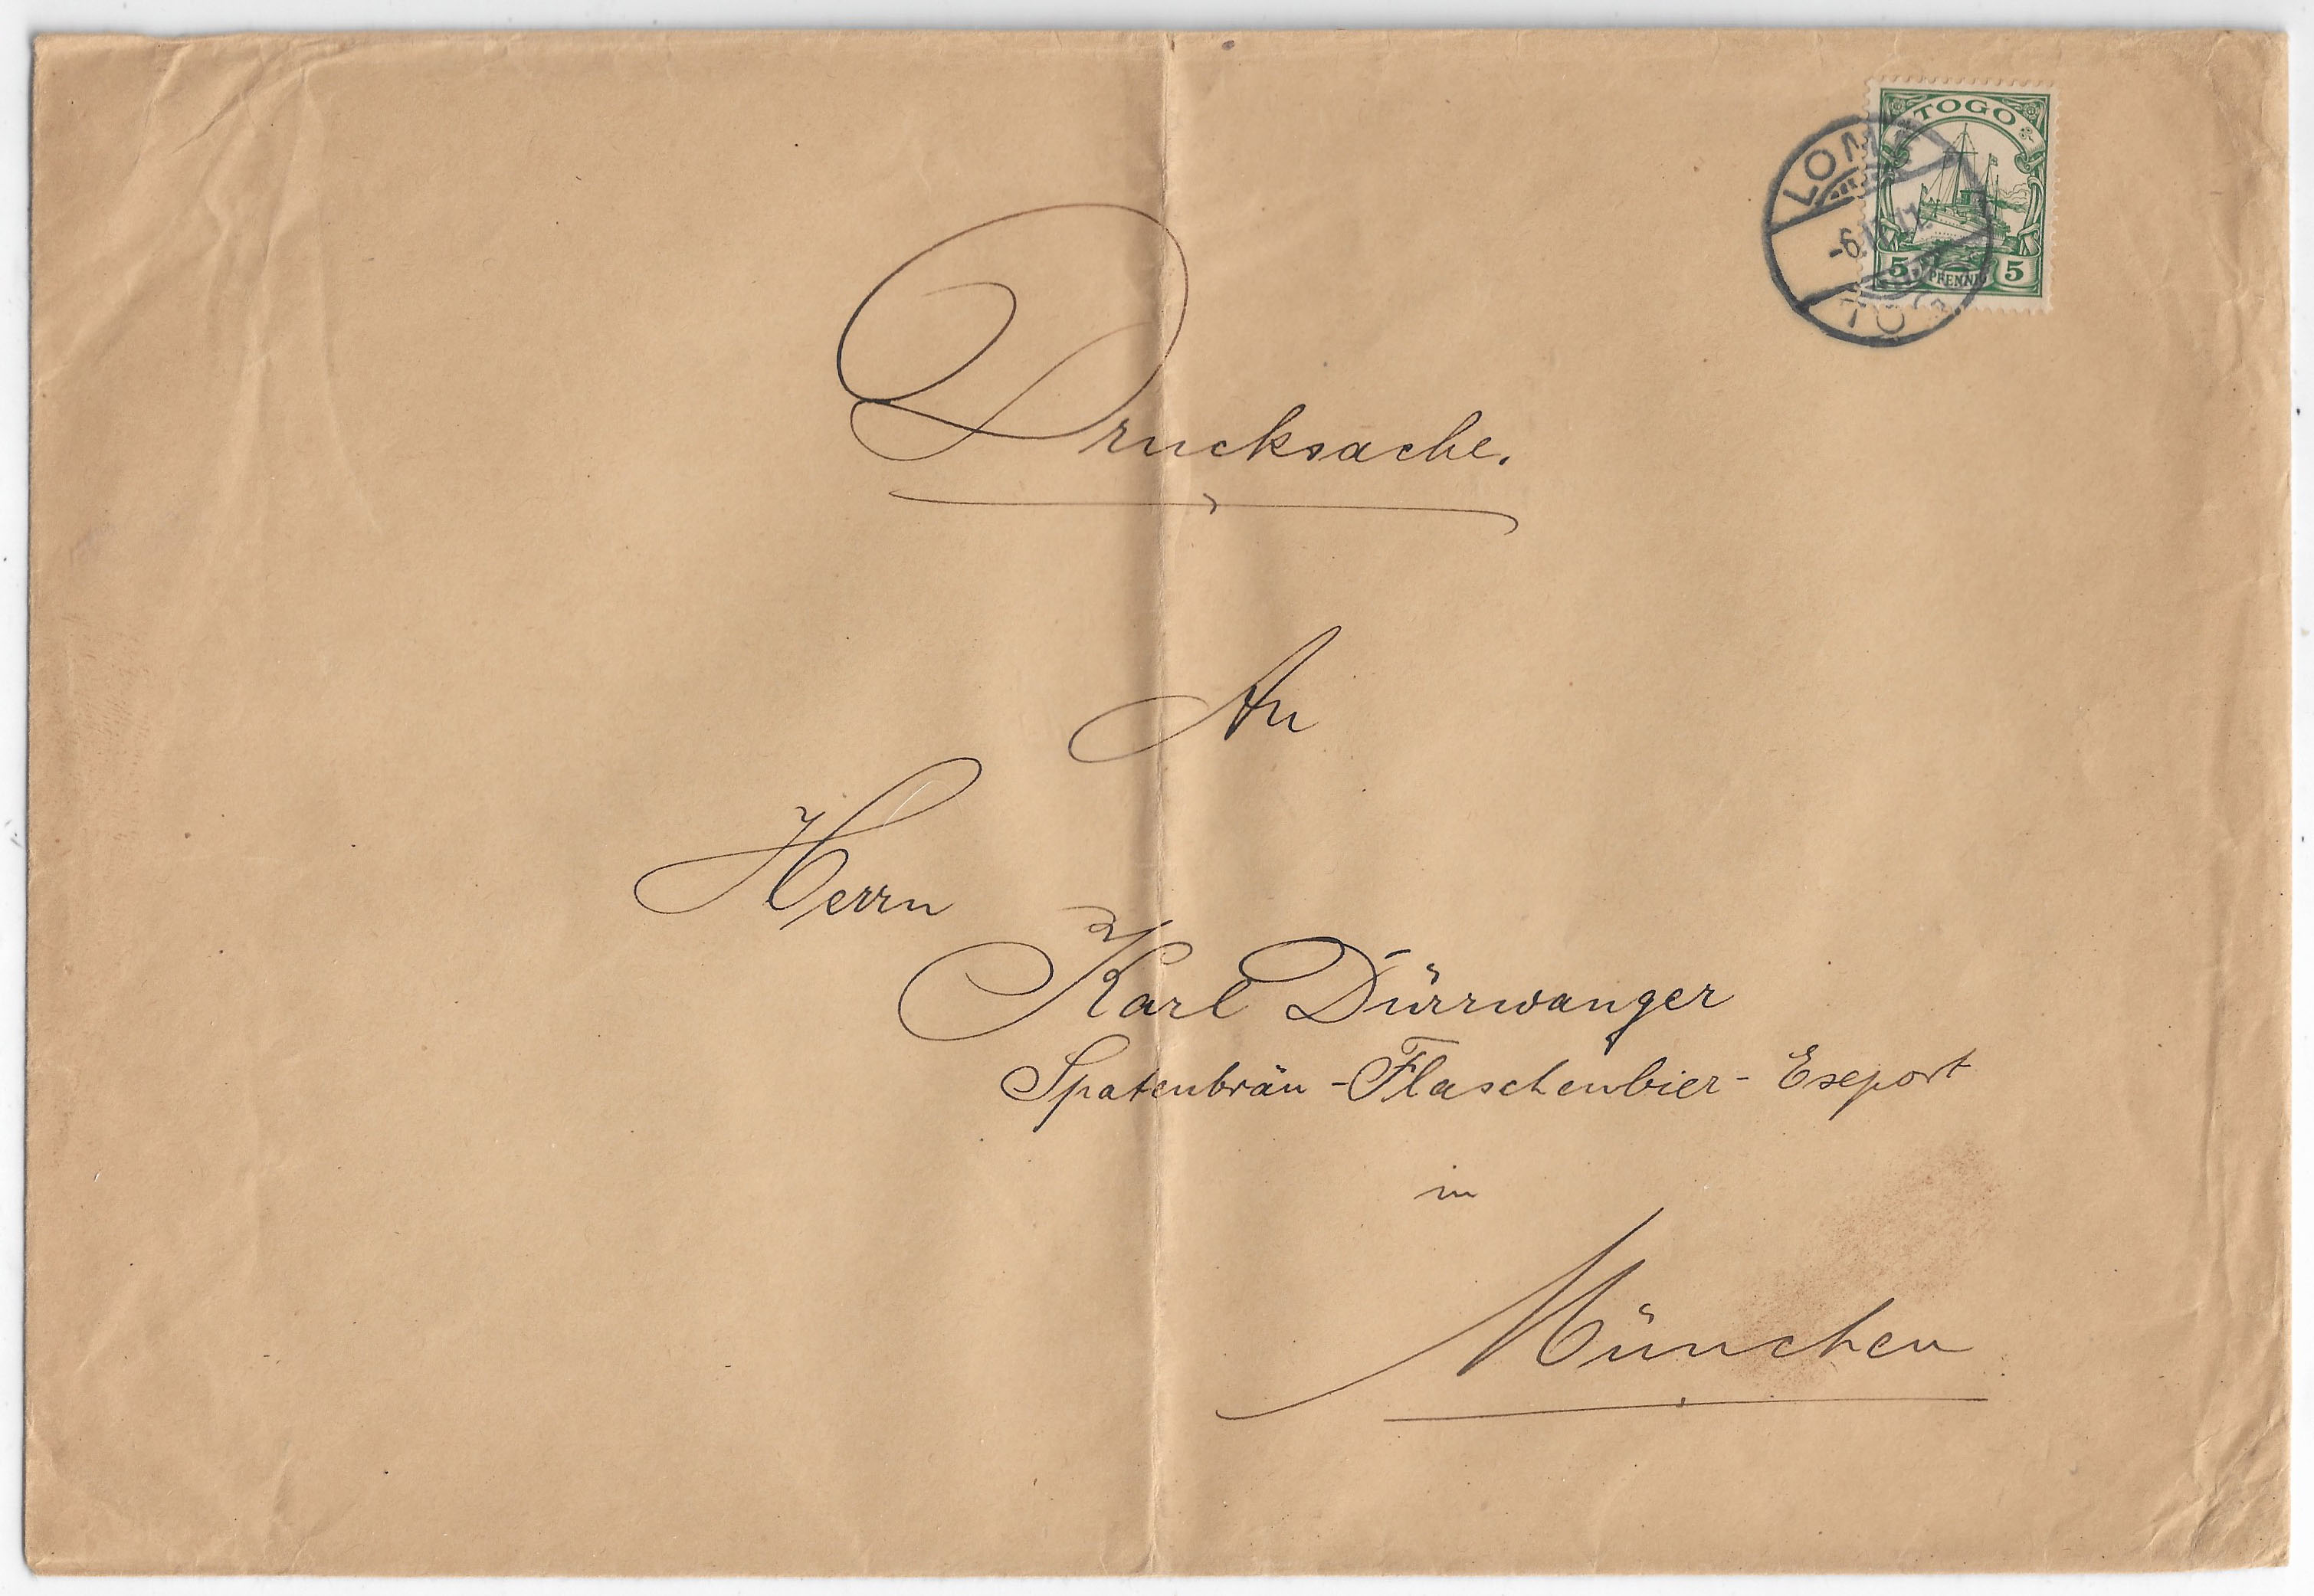 TOGO
5 PFENNIG 5
LOME
TOGO
Drucksache.
An
Herrn
Karl Dürrwanger
Spatenbräu - Flaschenbier - Export
in
München